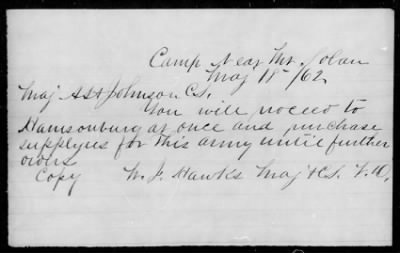 Camp Near Mt. Solan
May 18 - /62
Maj A S Johnson C.S.
You will proceed to
Harrisonburg at once and purchase
supplyes for this army until further
orders
Copy W. J. Hawks Maj & C.S. V.D.